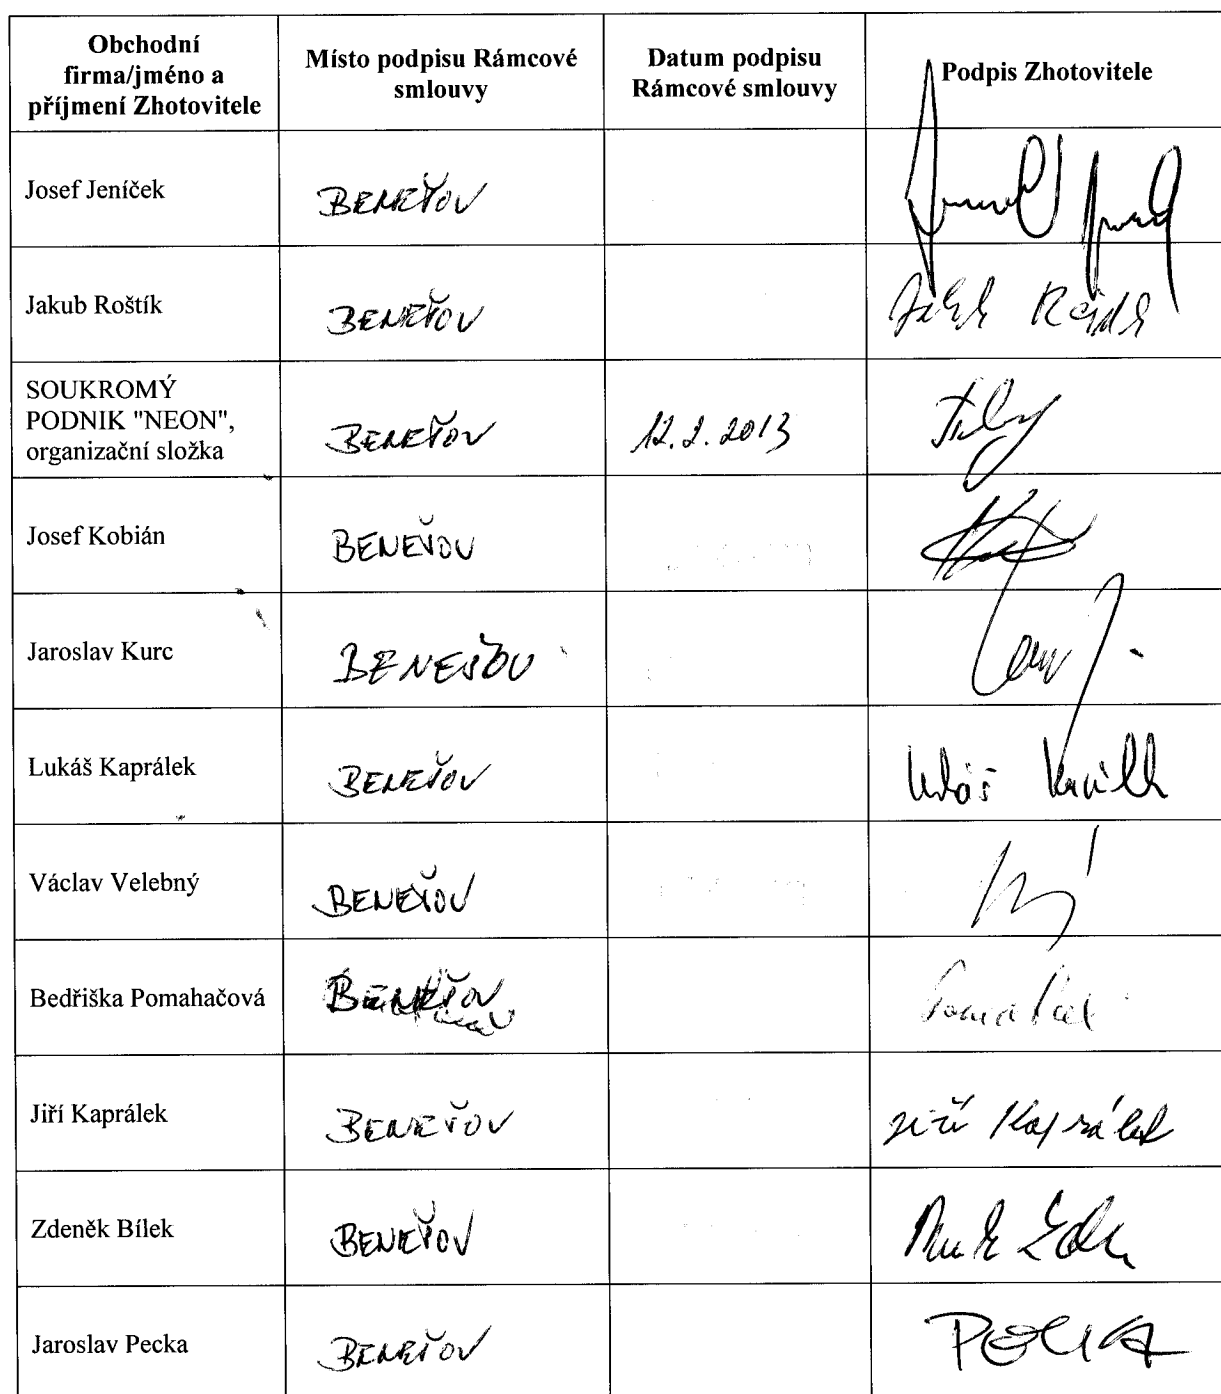 Obchodní firma/jméno a příjmení Zhotovitele | Místo podpisu Rámcové smlouvy | Datum podpisu Rámcové smlouvy | Podpis Zhotovitele
Josef Jeníček BENEŠOV
Jakub Roštík BENEŠOV
SOUKROMÝ
PODNIK "NEON",
organizační složka BENEŠOV 12.2.2013
Josef Kobián BENEŠOV
Jaroslav Kurc BENEŠOV
Lukáš Kaprálek BENEŠOV Lukáš
Václav Velebný BENEŠOV
Bedřiška Pomahačová BENEŠOV
Jiří Kaprálek BENEŠOV Jiří Kaprálek
Zdeněk Bílek BENEŠOV
Jaroslav Pecka BENEŠOV